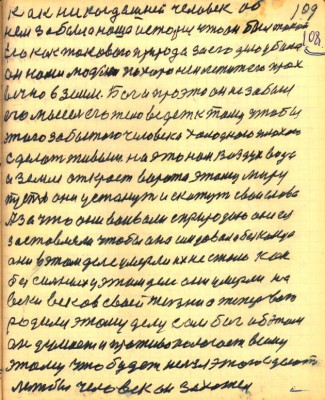 как никогдашней человек об 109
нем забыла наша история что он был такой 108.
его как такового природа за его дело убила
он нами людьми похоронен лежит его прах
вечно в земле. Бог про это он не забыл
его мысль его тело ведет к тому чтобы
этого забытого человека холодного плохого
сделать живым. на это нам воздух вода
и земля откроет ворота этому миру
пустые они устанут и скажут свои слова
Мы за что они воевали с природою они ея
заставляли чтобы она
они в этом деле умерли их не стало как
бы сильных в этом деле они умерли на
веки веков своей жизнею а теперь его
родили этому делу сам бог об этом
он думает и противополагает всему
этому что будет нельзя этого сделать
лишь бы человек он захотел